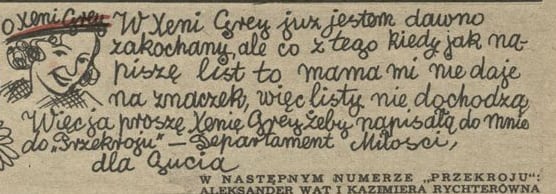 O Xeni Grey
W Xeni Grey już jestem dawno
zakochany, ale co z tego kiedy jak na-
piszę list to mama mi nie daje
na znaczek, więc listy nie dochodzą
Więc ja proszę Xenię Grey żeby napisała do mnie
do "Przekroju" — Separtament Miłości,
dla Gucia
W NASTĘPNYM NUMERZE „PRZEKROJU":
ALEKSANDER WAT I KAZIMIERA RYCHTERÓWNA